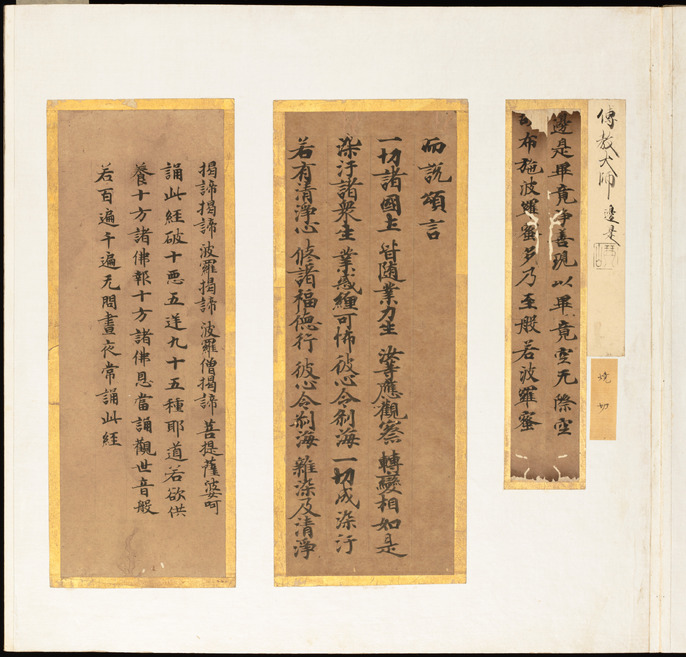 傳教大師 邊是
燒切
邊是畢竟淨善現以畢竟空无際空
布施波羅蜜多乃至般若波羅蜜
而說頌言
一切諸國土 皆随業力生 汝等應觀察 轉變相如是
染汙諸衆生 業惑纏可怖 彼心令刹海 一切成染汙
若有清淨心 修諸福德行 彼心令刹海 雜染及清淨
揭諦揭諦 波羅揭諦 波羅僧揭諦 菩提薩婆呵
誦此經破十悪五逆九十五種耶道若欲供
養十方諸佛報十方諸佛恩當誦觀世音般
若百遍千遍无問晝夜常誦此經